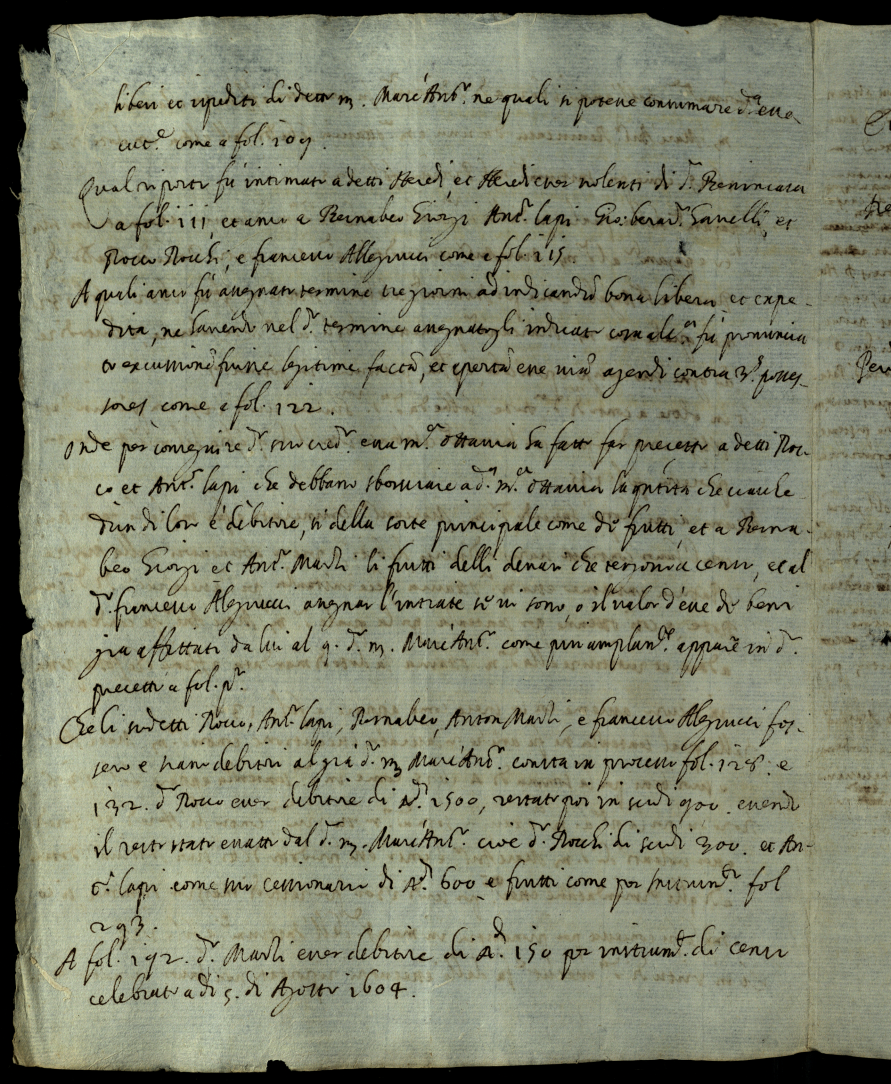 liberi et ispediti di detto m. Marc'Ant.º ne quali si potesse consumare d.ª esse-
cut.e come a fol. 109.
Qual riporto fù intimato a detti Heredi, et Heredi esser nolenti di d.
a fol. 111, et anco a Bernabeo Giorgi Ant.º lapi Gio: berar.º Savelli, et
Rocco Rocchi, e francesco Allegrucci come a fol. 115.
A quali anco fù assegnato termine tre giorni ad indicandũ bona libera, et expe-
dita, ne havendo nel d.º termine assegnatogli indicato cosa alc.ª fù pronuncia
to excussionẽ fuisse legitime factã, et apertã esse viã agendi contra 3.s posses-
sores come a fol. 122.
Onde per conseguire d.º suo cred.º essa m.ª Ottavia ha fatto far precetto a detti Roc-
co et Ant.º lapi che debbano sborsare a d.ª m.ª Ottavia la q̃ntità che ciasche
dun di loro è debitore, sì della sorte principale come de frutti, et a Berna-
beo Giorgi et Ant.º Marli li frutti delli denari che tengono a censo, et al
d.º francesco Alegrucci assegnar l'intrate se vi sono, o il valor d'esse de beni
già affittati da lui al q. d.º m. Marc'Ant.º come più amplam.te appare in d.º
precetto a fol. p.º
Che li sudetti Rocco, Ant.º lapi, Bernabeo, Anton Marli, e francesco Alegrucci fos-
sero e siano debitori al già d.º m. Marc'Ant.º consta in processo fol. 128. e
132. d.º Rocco esser debitore di sc.di 1500, restato poi in scudi 900 essendo
il resto stato esatto dal d.º m. Marc'Ant.º cioè d.º Rocchi di scudi 300. et An-
t.º lapi come suo cessionario di sc.di 600 e frutti come per Instrum.to fol
293.
A fol. 192. d.º Marli esser debitore di sc.di 150 per instrum.to di censo
celebrato a dì 5. di Agosto 1604.